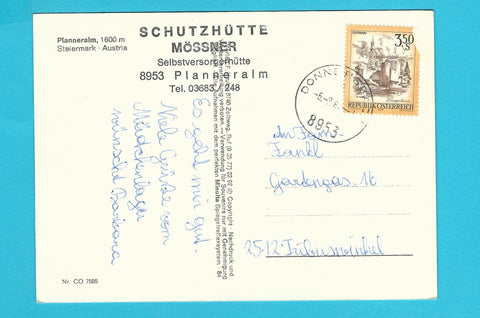 Planneralm, 1600 m
Steiermark - Austria
SCHUTZHÜTTE
MÖSSNER
Selbstversorgerhütte
8953 Planneralm
Tel. 03683 / 248
Es geht mir gut
Viele Grüße vom
Mädchenlager
wünscht Barbara
8740 Zeltweg, (0 35 77) 22 92 Copyright Nachdruck und
verboten - Verwendung für Souvenirs nur mit Genehmigung
mit dem perfekten Minolta Spiegelreflexsystem. 84
DONNE
8953
3,50
S
REPUBLIK ÖSTERREICH
An Fam.
Gartengas. 16
2512 Tribuswinkel
Nr. CO 7566